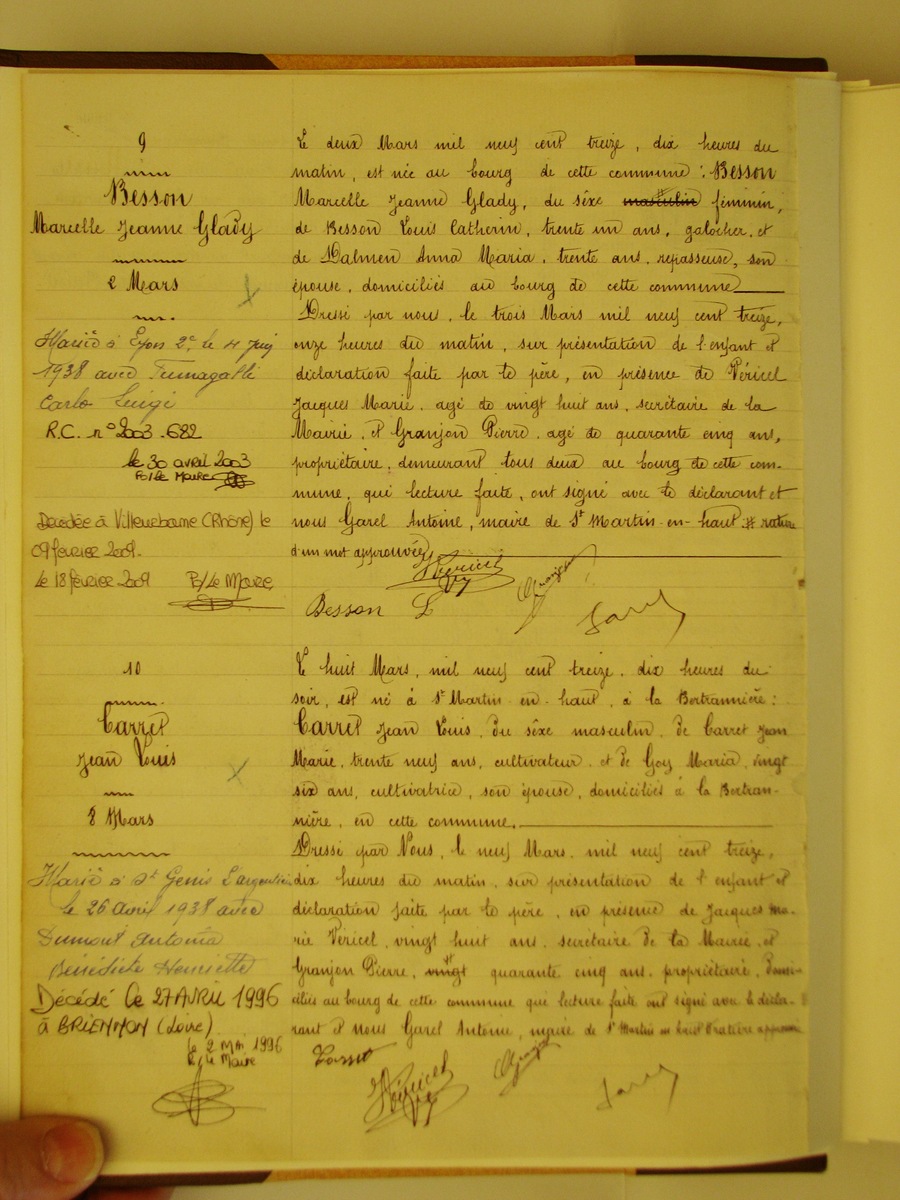 9
Besson
Marcelle Jeanne Glady
2 Mars
Marié à Lyon 2e, le 4 juin
1938 avec Fumagalli
Carlo Luigi
R.C. n° 2003.682
le 30 avril 2003
Po/Le Maire
Décédée à Villeurbanne (Rhône) le
09 février 2009.
Le 18 février 2009 Po/Le Maire,
Le deux Mars mil neuf cent treize, dix heures du
matin, est née au bourg de cette commune : Besson
Marcelle Jeanne Glady, du séxe masculin féminin,
de Besson Louis Catherin, trente un ans, galocher, et
de Dalmen Anna Maria, trente ans, repasseuse, son
épouse, domiciliés au bourg de cette commune
Dressé par nous, le trois Mars mil neuf cent treize,
onze heures du matin, sur présentation de l'enfant et
déclaration faite par le père, en présence de Véricel
Jacques Marie, agé de vingt huit ans, secrétaire de la
Mairie, et Granjon Pierre, agé de quarante cinq ans,
propriétaire, demeurant tous deux au bourg de cette com-
mune, qui lecture faite, ont signé avec le déclarant et
nous Garel Antoine, maire de St Martin-en-haut # rature
d'un mot approuvée
Véricel Granjon
Besson L Garel
10
Carret
Jean Louis
8 Mars
Marié à St Genis L'argentière
le 26 avril 1938 avec
Dumont Antonia
Bénédicte Henriette
Décédé le 27 AVRIL 1996
à BRIENNON (Loire)
le 2 MAI 1996
P/ le Maire
Le huit Mars, mil neuf cent treize, dix heures du
soir, est né à St Martin-en-haut, à la Bertrannière :
Carret Jean Louis, du séxe masculin, de Carret Jean
Marie, trente neuf ans, cultivateur, et de Goy Maria, vingt
six ans, cultivatrice, son épouse, domiciliés à la Bertran-
nière, en cette commune.
Dressé par Nous, le neuf Mars, mil neuf cent treize,
dix heures du matin, sur présentation de l'enfant et
déclaration faite par le père, en présence de Jacques Ma-
rie Véricel, vingt huit ans, secrétaire de la Mairie, et
Granjon Pierre, vingt # quarante cinq ans, propriétaire, domi-
ciliés au bourg de cette commune qui lecture faite ont signé avec le décla-
rant et nous Garel Antoine, maire de St Martin en haut # rature approuvée
Carret Véricel Granjon Garel